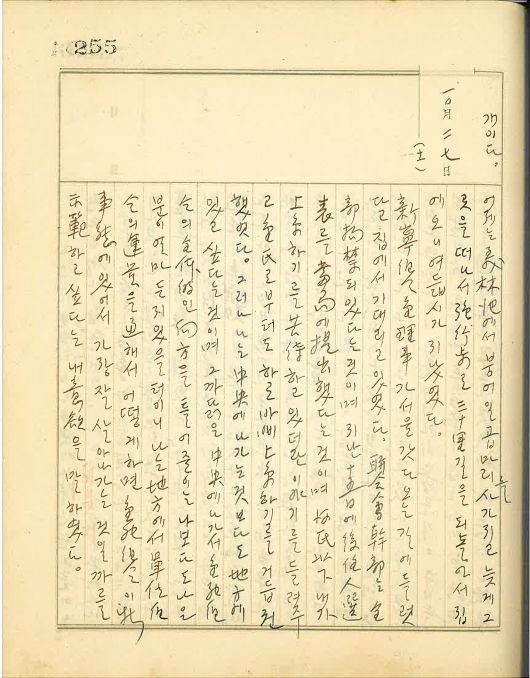 255
개이다。
一〇月二七日
(土)
어제는 義林池에서 붕어 일곱 마리를 사가지고 늦게 그
곳을 떠나서 强行軍으로 三十里 길을 되돌아서 집
에 오니 여덟시가 지났었다。
新 理事가 서울 갔다 오는 길에 들렀
다고 집에서 기대리고 있었다。聯合會 幹部는 全
部 拘禁되있다는 것이며 지난 十五日에 後任 人選
表를 當局에 提出했다는 것이며 氏以下 내가
上京하기를 苦待하고 있더란 이야기를 들려주
고 氏로부터도 하로 바삐 上京하기를 거듭 권
했었다。그러나 나는 中央에 나가는 것보다도 地方에
있고 싶다는 것이며 그 까닭을 中央에 나가서 金融組
合의 全体的인 向方을 틀어 줄이는 나보다도 나은
분이 얼마든지 있을 터이니 나는 地方에서 單位組
合의 運營을 通해서 어떻게 하면 金融組合이 이 新
事態에 있어서 가장 잘 살아가는 것일까를
示範하고 싶다는 내 意欲을 말하였다。